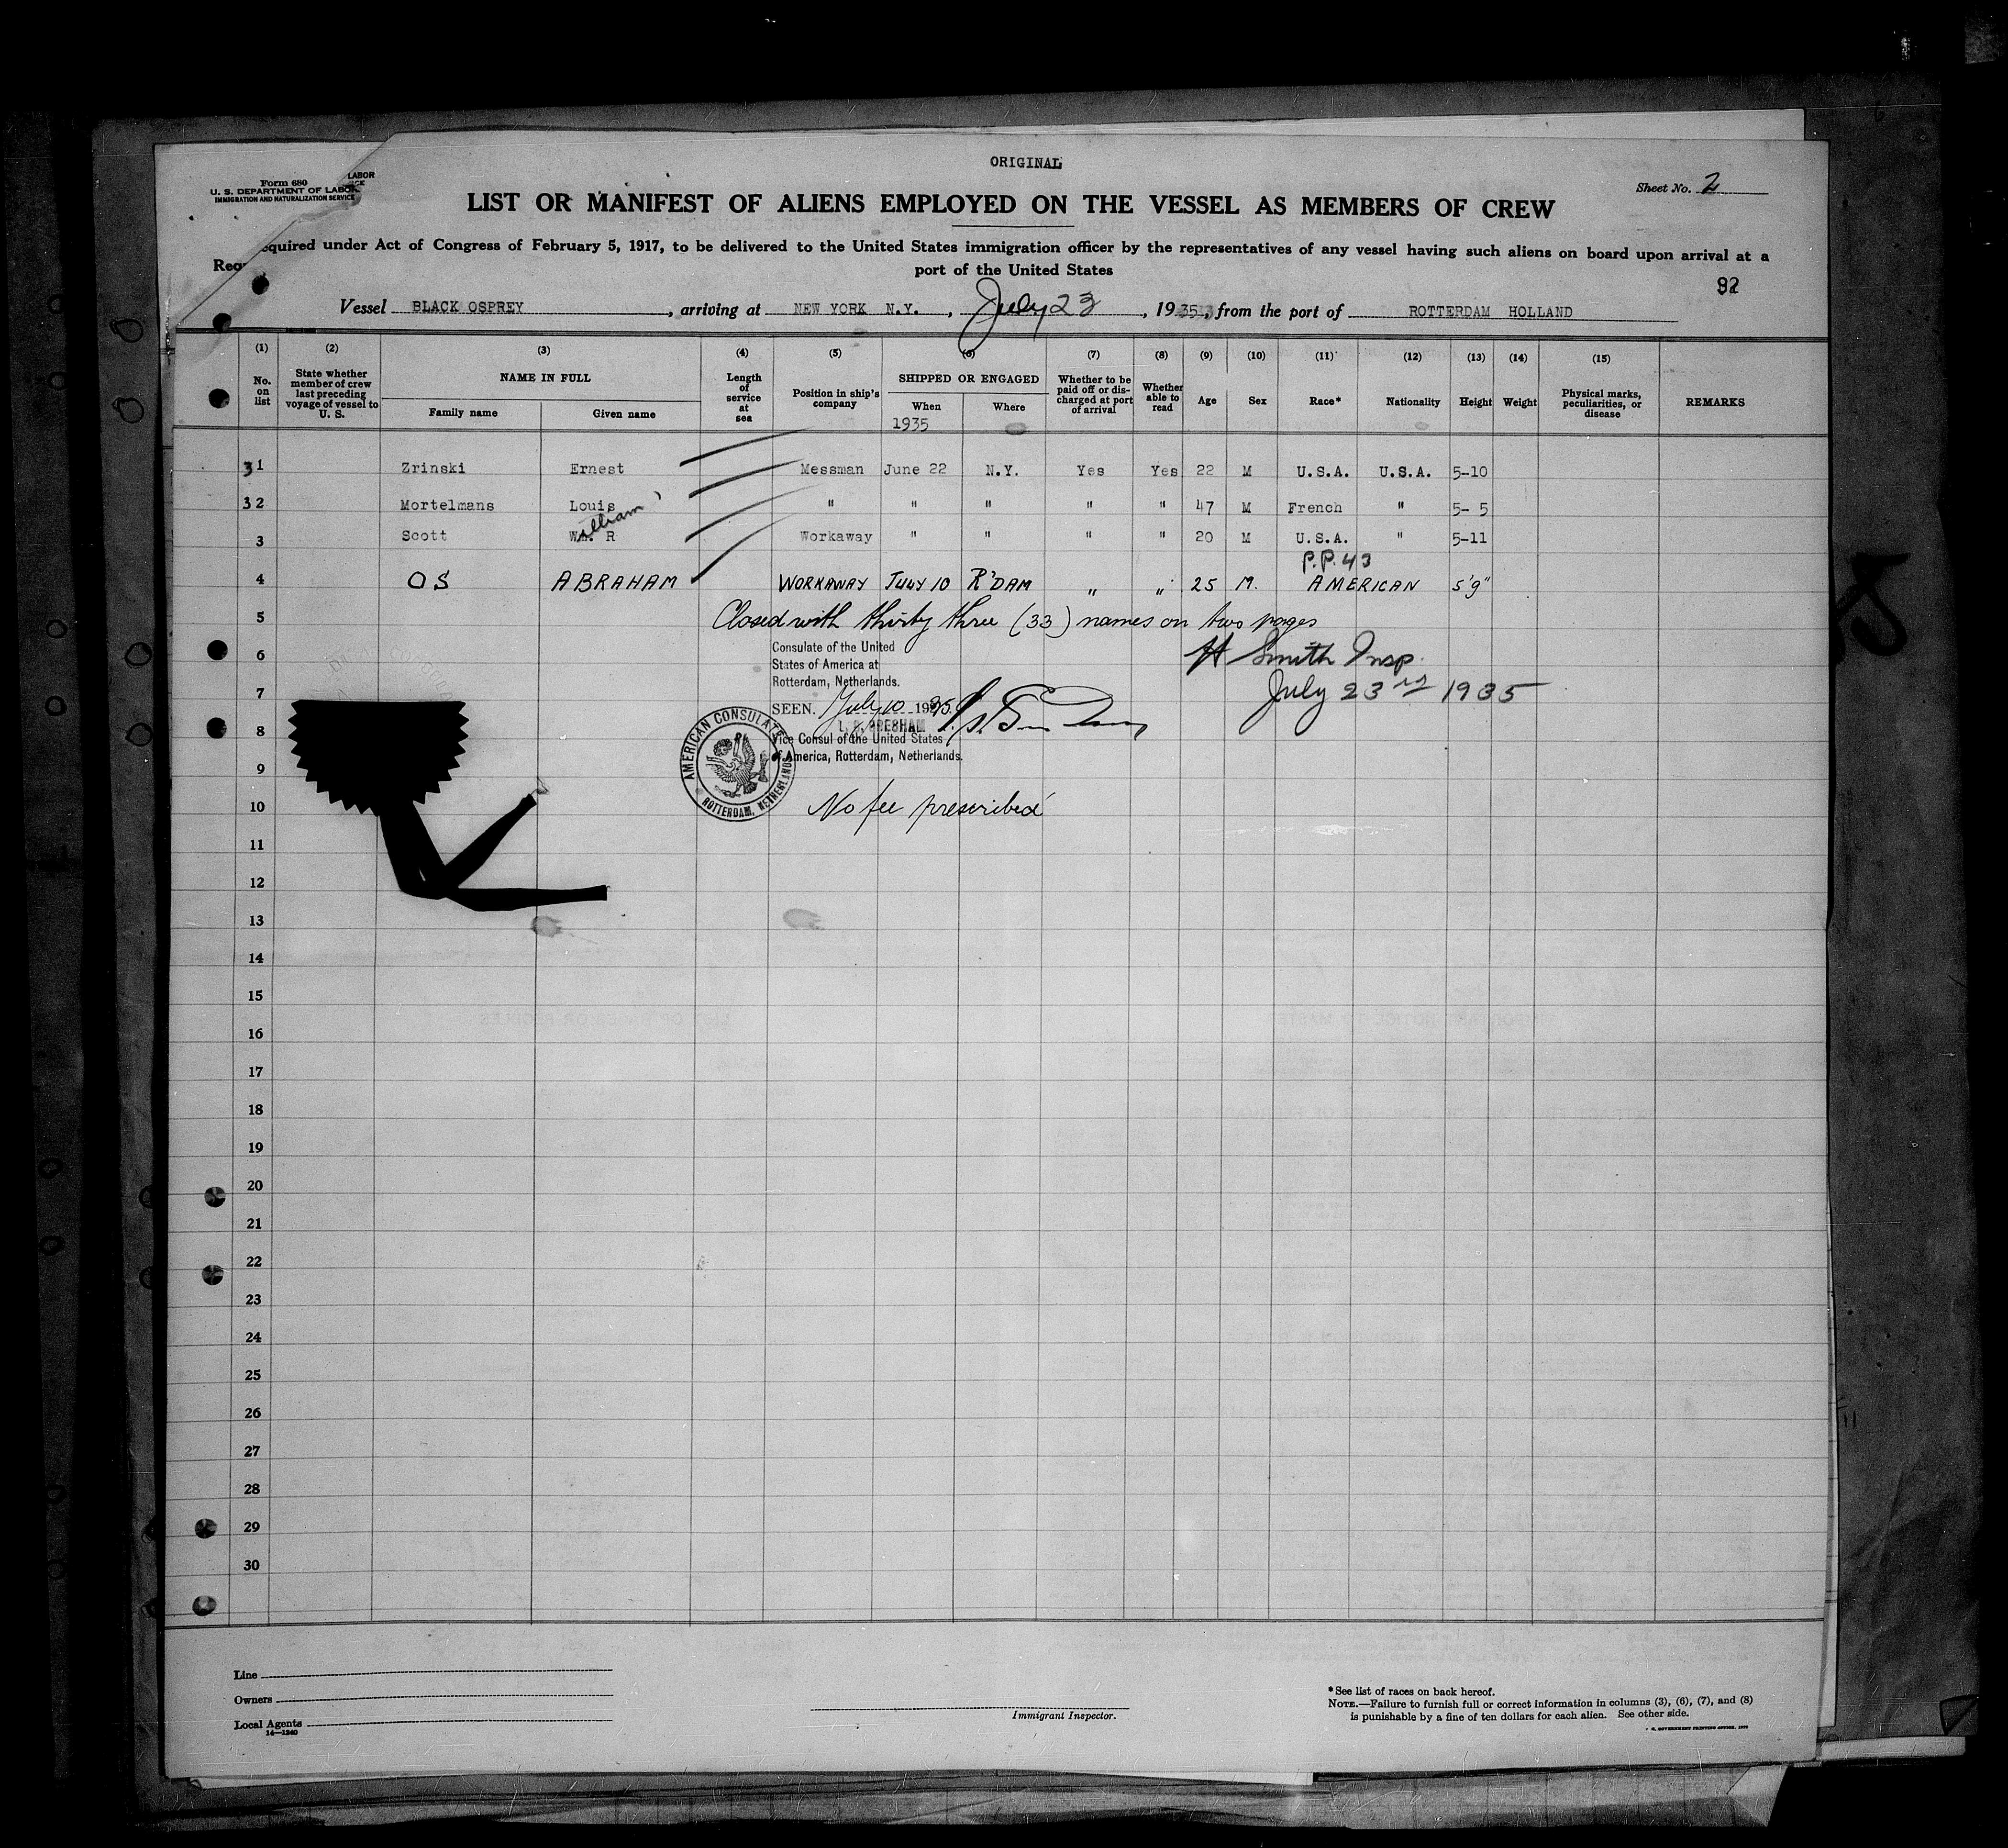 ORIGINAL
Form 680
U. S. DEPARTMENT OF LABOR
IMMIGRATION AND NATURALIZATION SERVICE
LABOR
Sheet No. 2
LIST OR MANIFEST OF ALIENS EMPLOYED ON THE VESSEL AS MEMBERS OF CREW
equired under Act of Congress of February 5, 1917, to be delivered to the United States immigration officer by the representatives of any vessel having such aliens on board upon arrival at a
port of the United States
92
Vessel BLACK OSPREY, arriving at NEW YORK N.Y., July 23, 1935, from the port of ROTTERDAM HOLLAND
(1) (2) (3) (4) (5) (6) (7) (8) (9) (10) (11) (12) (13) (14) (15)
No. on list State whether member of crew last preceding voyage of vessel to U. S. NAME IN FULL Family name Given name Length of service at sea Position in ship's company SHIPPED OR ENGAGED When Where Whether to be paid off or discharged at port of arrival Whether able to read Age Sex Race* Nationality Height Weight Physical marks, peculiarities, or disease REMARKS
1935
31 Zrinski Ernest Messman June 22 N.Y. Yes Yes 22 M U.S.A. U.S.A. 5-10
32 Mortelmans Louis " " " " " 47 M French " 5- 5
William
3 Scott Wm. R Workaway " " " " 20 M U.S.A. " 5-11
P.P. 43
4 OS ABRAHAM WORKAWAY JULY 10 R'DAM " " 25 M. AMERICAN 5'9"
5 Closed with thirty three (33) names on two pages
Consulate of the United
6 States of America at
H Smith Insp.
Rotterdam, Netherlands.
7 July 23rd 1935
SEEN. July 10 1935
8 Vice Consul of the United States
of America, Rotterdam, Netherlands.
AMERICAN CONSULATE
ROTTERDAM, NETHERLANDS
9
10 No fee prescribed
11
12
13
14
15
16
17
18
19
20
21
22
23
24
25
26
27
28
29
30
Line
Owners
Local Agents
14—1240
Immigrant Inspector.
*See list of races on back hereof.
NOTE.—Failure to furnish full or correct information in columns (3), (6), (7), and (8)
is punishable by a fine of ten dollars for each alien. See other side.